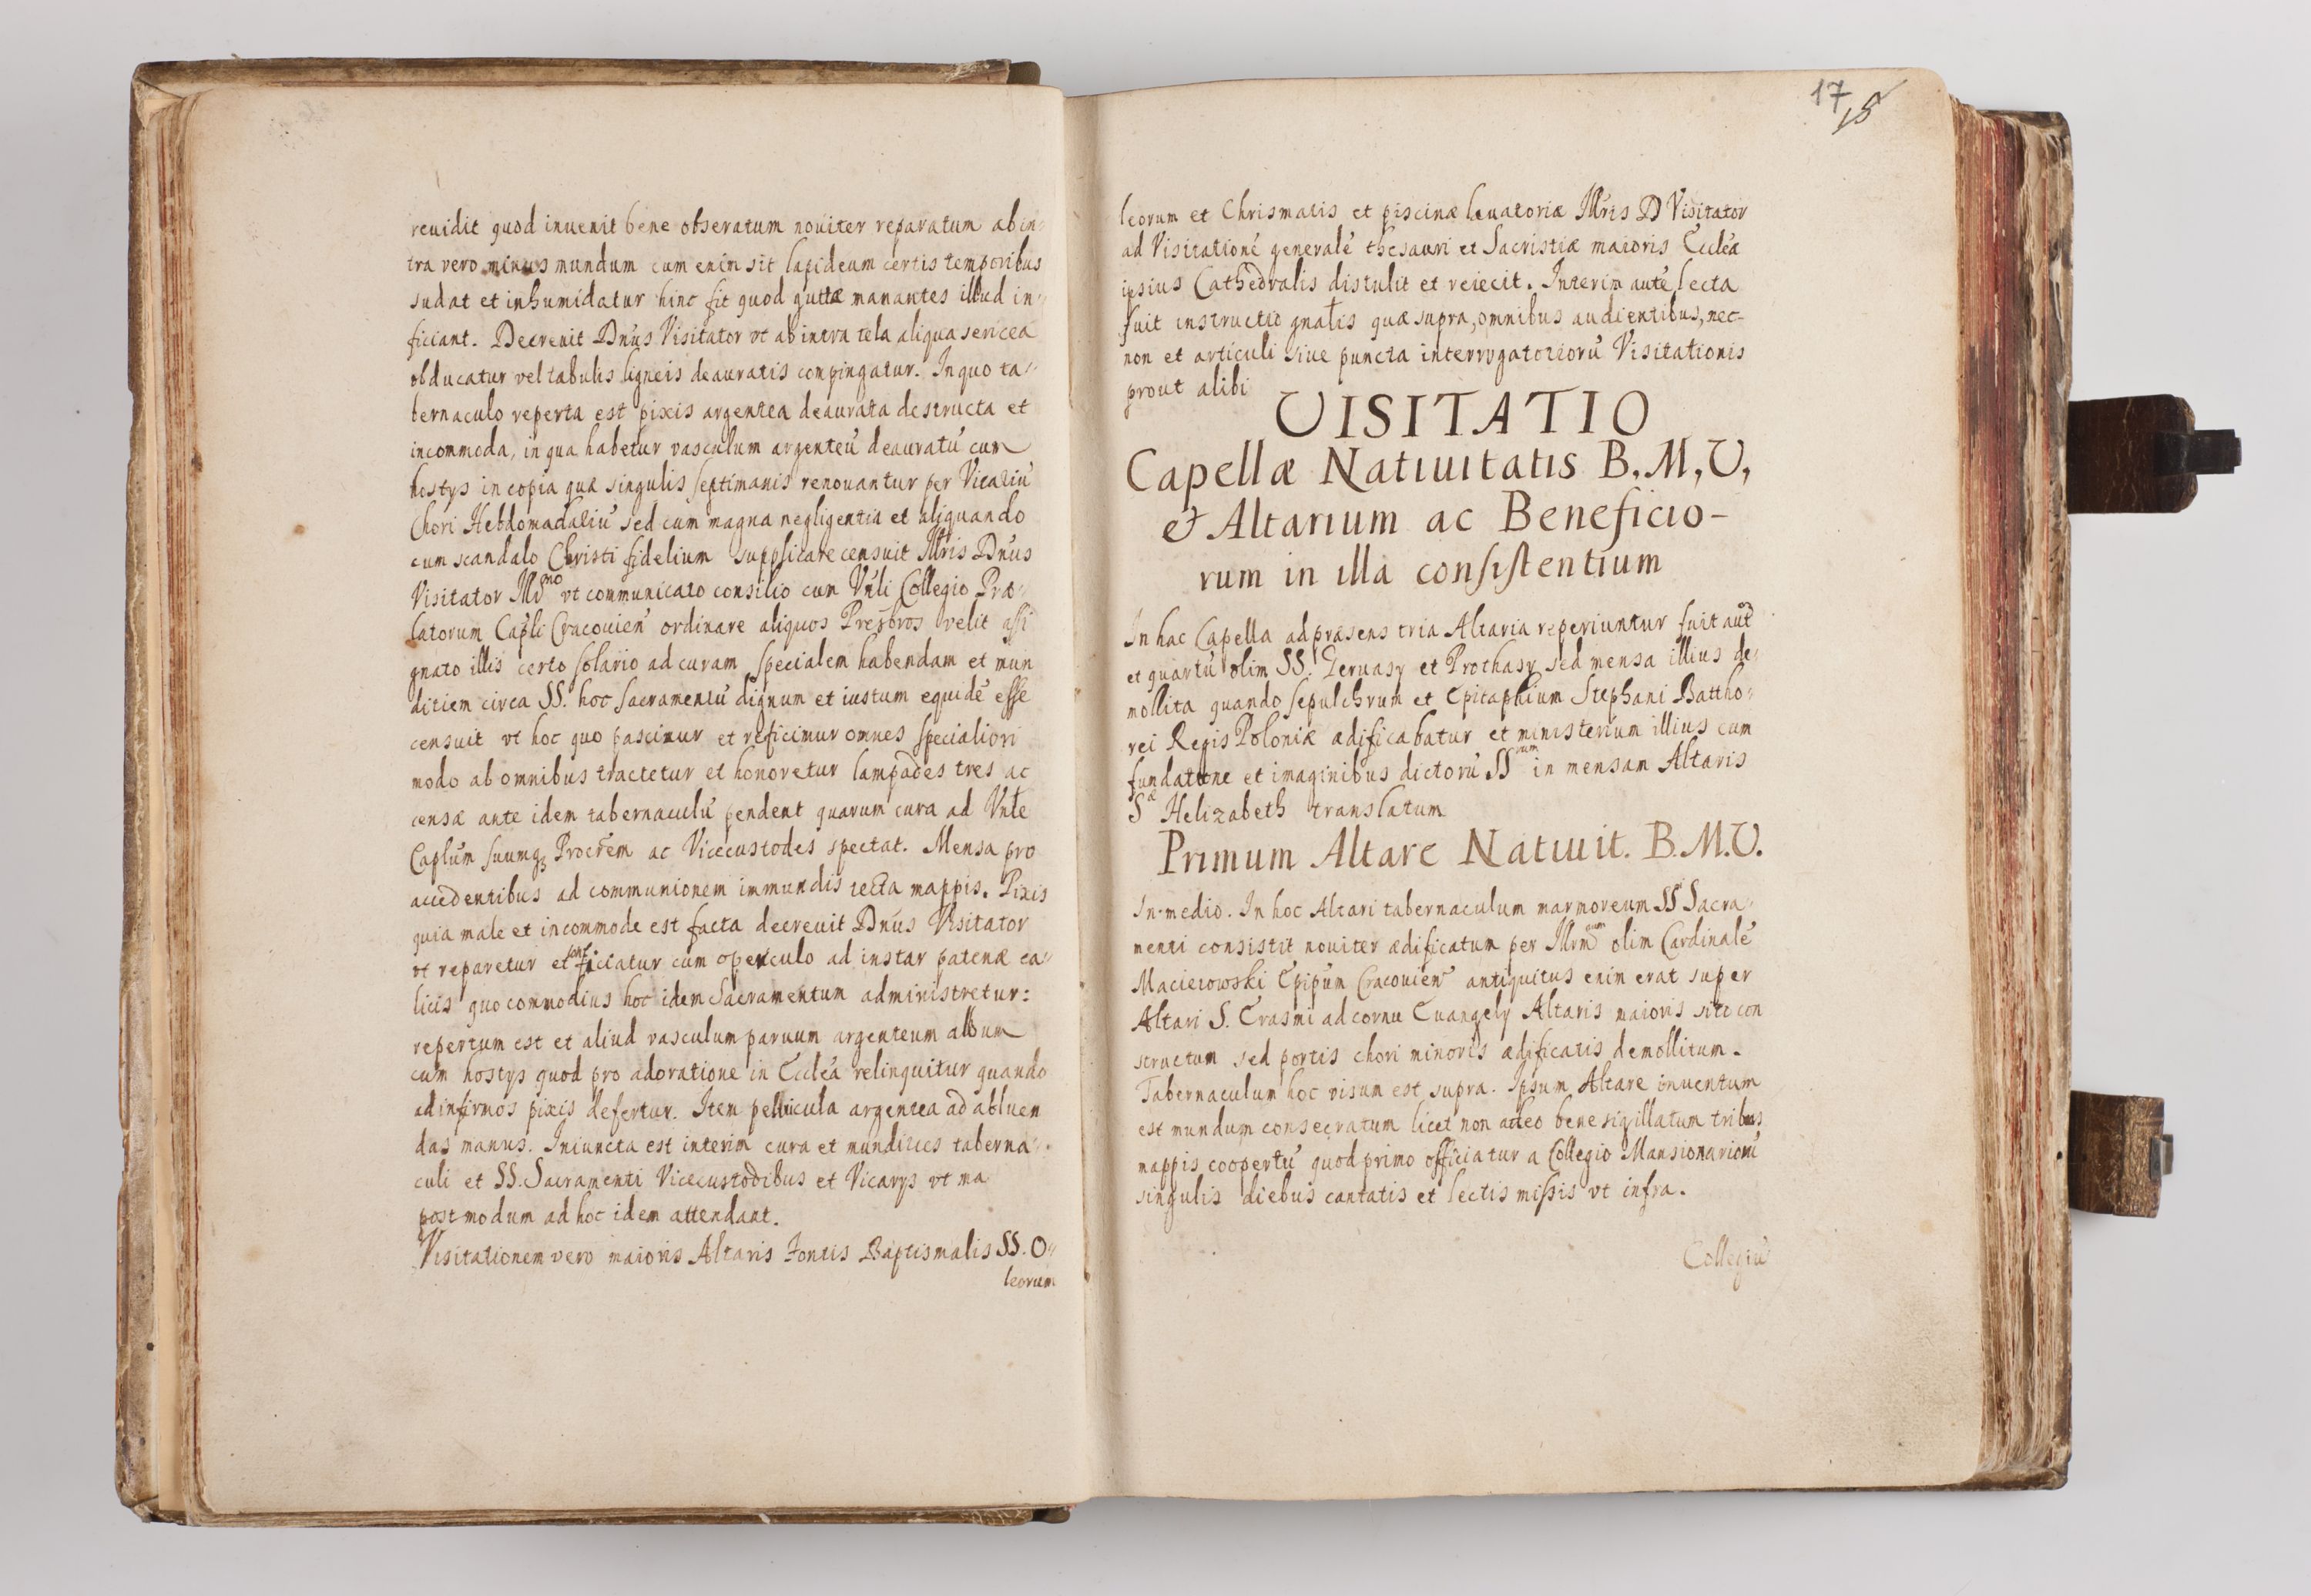 reuidit quod inuenit bene obseratum nouiter reparatum ab in-
tra vero minus mundum cum enim sit lapideum certis temporibus
sudat et inhumidatur hinc fit quod guttæ manantes illud in-
ficiant. Decreuit Dnus Visitator vt ab intra tela aliqua sericea
obducatur vel tabulis ligneis deauratis compingatur. In quo ta-
bernaculo reperta est pixis argentea deaurata destructa et
incommoda, in qua habetur vasculum argenteũ deauratũ cum
hostys in copia quæ singulis septimanis renouantur per Vicariũ
Chori Hebdomadaliũ sed cum magna negligentia et aliquando
cum scandalo Christi fidelium supplicare censuit Illris Dnus
Visitator Illmo vt communicato consilio cum Vnli Collegio Præ-
latorum Capli Cracouien ordinare aliquos Presbros velit assi
gnato illis certo solario ad curam specialem habendam et mun
ditiem circa SS. hoc Sacramentũ dignum et iustum equidẽ esse
censuit vt hoc quo pascimur et reficimur omnes specialiori
modo ab omnibus tractetur et honoretur lampades tres ac
censæ ante idem tabernaculũ pendent quarum cura ad Vnle
Caplum suumq3 Procrem ac Vicecustodes spectat. Mensa pro
accedentibus ad communionem immundis tecta mappis. Pixis
quia male et incommode est facta decreuit Dnus Visitator
vt reparetur et conficiatur cum operculo ad instar patenæ ca-
licis quo commodius hoc idem Sacramentum administretur:
repertum est et aliud vasculum paruum argenteum album
cum hostys quod pro adoratione in Eccleã relinquitur quando
ad infirmos pixis defertur. Item pelluicula argentea ad abluen
das manus. Iniuncta est interim cura et mundities taberna-
culi et SS. Sacramenti Vicecustodibus et Vicarys vt ma
postmodum ad hoc idem attendant.
Visitationem vero maioris Altaris Fontis Baptismalis SS. O-
leorum
17
18
leorum et Chrismatis et piscinæ lauatoriæ Illris D Visitator
ad Visitationẽ generalẽ thesauri et Sacristiæ maioris Eccleæ
ipsius Cathedralis distulit et reiecit. Interim autẽ lecta
fuit instructio gnalis quæ supra, omnibus audientibus, nec-
non et articuli siue puncta interrogatoriorũ Visitationis
prout alibi
UISITATIO
Capellæ Natiuitatis B. M, U,
& Altarium ac Beneficio-
rum in illa consistentium
In hac Capella ad præsens tria Altaria reperiuntur fuit aud
et quartũ olim SS. Geruasy et Prothasy sed mensa illius de-
mollita quando sepulchrum et Epitaphium Stephani Battho-
rei Regis Poloniæ ædificabatur et ministerium illius cum
fundatione et imaginibus dictorũ SSrum in mensam Altaris
Sæ Helizabeth translatum
Primum Altare Natiuit. B. M. U.
In medio. In hoc Altari tabernaculum marmoreum SS Sacra-
menti consistit nouiter ædificatum per Illrmum olim Cardinalẽ
Macieiowski Epipum Cracouien antiquitus enim erat super
Altari S. Erasmi ad cornu Euangely Altaris maioris siti con
structum sed portis chori minoris ædificatis demollitum.
Tabernaculum hoc visum est supra. Ipsum Altare inuentum
est mundum consecratum licet non adeo bene sigillatum tribus
mappis coopertũ quod primo officiatur a Collegio Mansionariorũ
singulis diebus cantatis et lectis missis vt infra.
Collegiũ